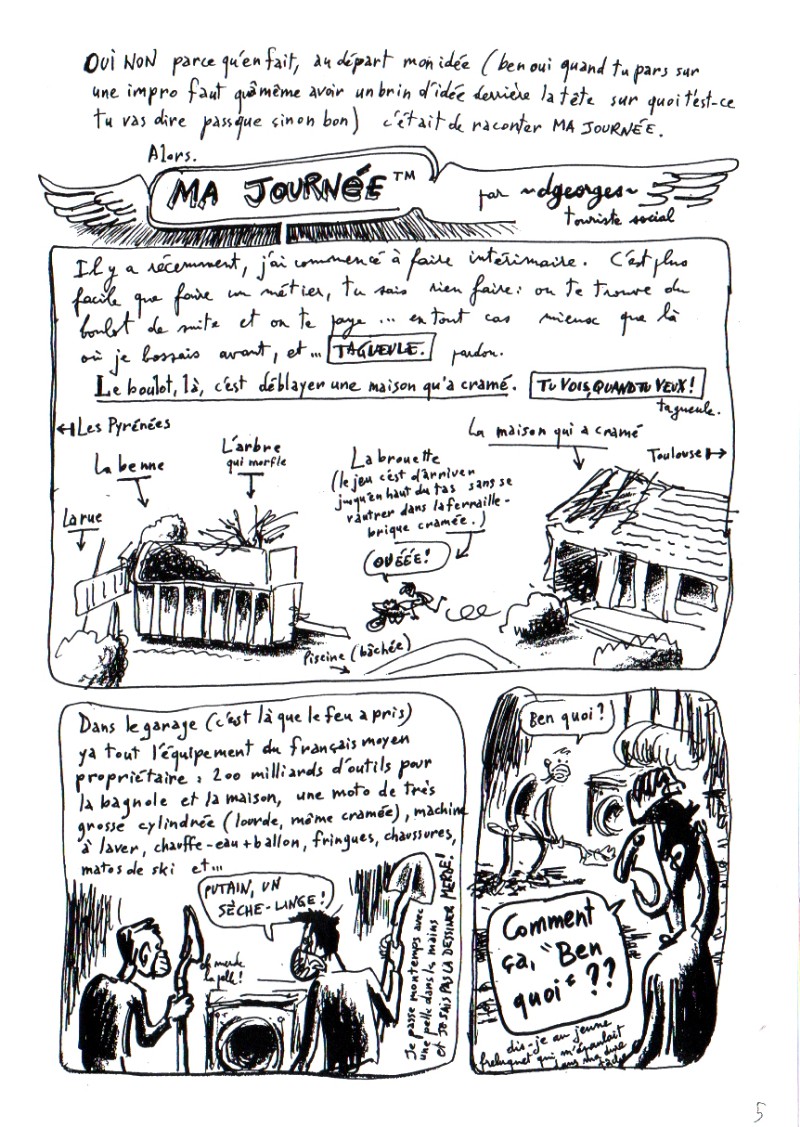 OUI NON parce qu'en fait, au départ mon idée (ben oui quand tu pars sur
une impro faut quâmême avoir un brin d'idée derrière la tête sur quoi t'est-ce
tu vas dire passque sinon bon) c'était de raconter MA JOURNÉE.
Alors.
MA JOURNÉE™
par ~dgeorges~
touriste social
Il y a récemment, j'ai commencé à faire intérimaire. C'est plus
facile que faire un métier, tu sais rien faire: on te trouve du
boulot de suite et on te paye... en tout cas mieux que là
où je bossais avant, et... TAGUEULE. pardon.
Le boulot, là, c'est déblayer une maison qu'a cramé. TU VOIS, QUAND TU VEUX!
tagueule.
Les Pyrénées
La benne
L'arbre
qui morfle
La rue
La brouette
(le jeu c'est d'arriver
jusqu'en haut du tas sans se
vautrer dans la ferraille-
brique cramée.)
OUÉÉE!
La maison qui a cramé
Toulouse
Piscine (bâchée)
Dans le garage (c'est là que le feu a pris)
ya tout l'équipement du français moyen
propriétaire : 200 milliards d'outils pour
la bagnole et la maison, une moto de très
grosse cylindrée (lourde, même cramée), machine
à laver, chauffe-eau + ballon, fringues, chaussures,
matos de ski et...
PUTAIN, UN
SÈCHE-LINGE!
et merde
la pelle!
Je passe mon temps avec
une pelle dans les mains
et JE SAIS PAS LA DESSINER MERDE!
Ben quoi?
Comment
ça, "Ben
quoi" ??
dis-je au jeune
freluquet qui m'épaulait
dans ma dure
tâche
5